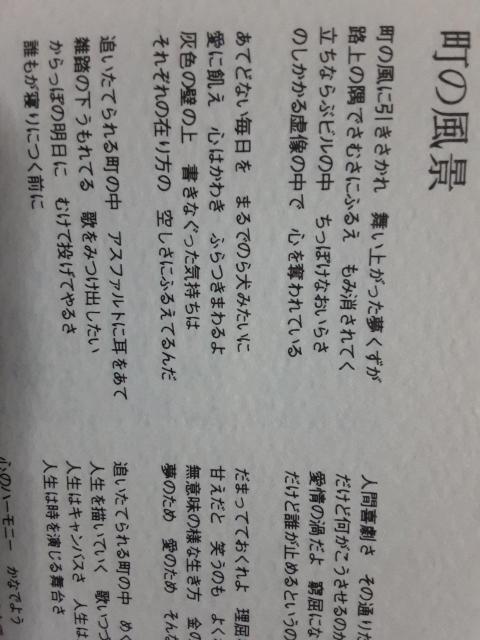 町の風景
町の風に引きさかれ 舞い上がった夢くずが
路上の隅でさむさにふるえ もみ消されてく
立ちならぶビルの中 ちっぽけなおいらさ
のしかかる虚像の中で 心を奪われている
あてどない毎日を まるでのら犬みたいに
愛に飢え 心はかわき ふらつきまわるよ
灰色の壁の上 書きなぐった気持ちは
それぞれの在り方の 空しさにふるえてるんだ
追いたてられる町の中 アスファルトに耳をあて
雑踏の下うもれてる 歌をみつけ出したい
からっぽの明日に むけて投げてやるさ
誰もが寝りにつく前に
人間喜劇さ その通りだ
だけど何がこうさせるのか
愛情の渦だよ 窮屈にな
だけど誰が止めるというの
だまってておくれよ 理屈
甘えだと 笑うのも よく
無意味の様な生き方 金の
夢のため 愛のため そんな
追いたてられる町の中 めぐ
人生を描いていく 歌いつづ
人生はキャンバスさ 人生は
人生は時を演じる舞台さ
心のハーモニー かなでよう